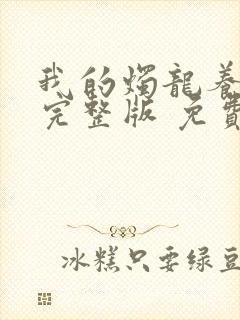 我的烛龍养
完整版 免費
冰糕只要绿豆